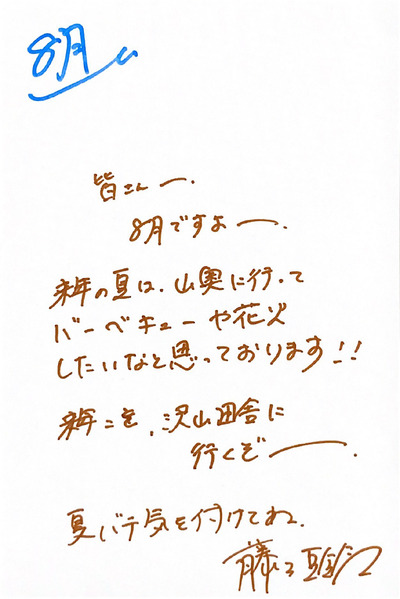 8月
皆さんー.
8月ですよー.
来年の夏は、山奥に行って
バーベキューや花火
したいなと思っております!!
来年こそ、沢山田舎に
行くぞー.
夏バテ気を付けてね.